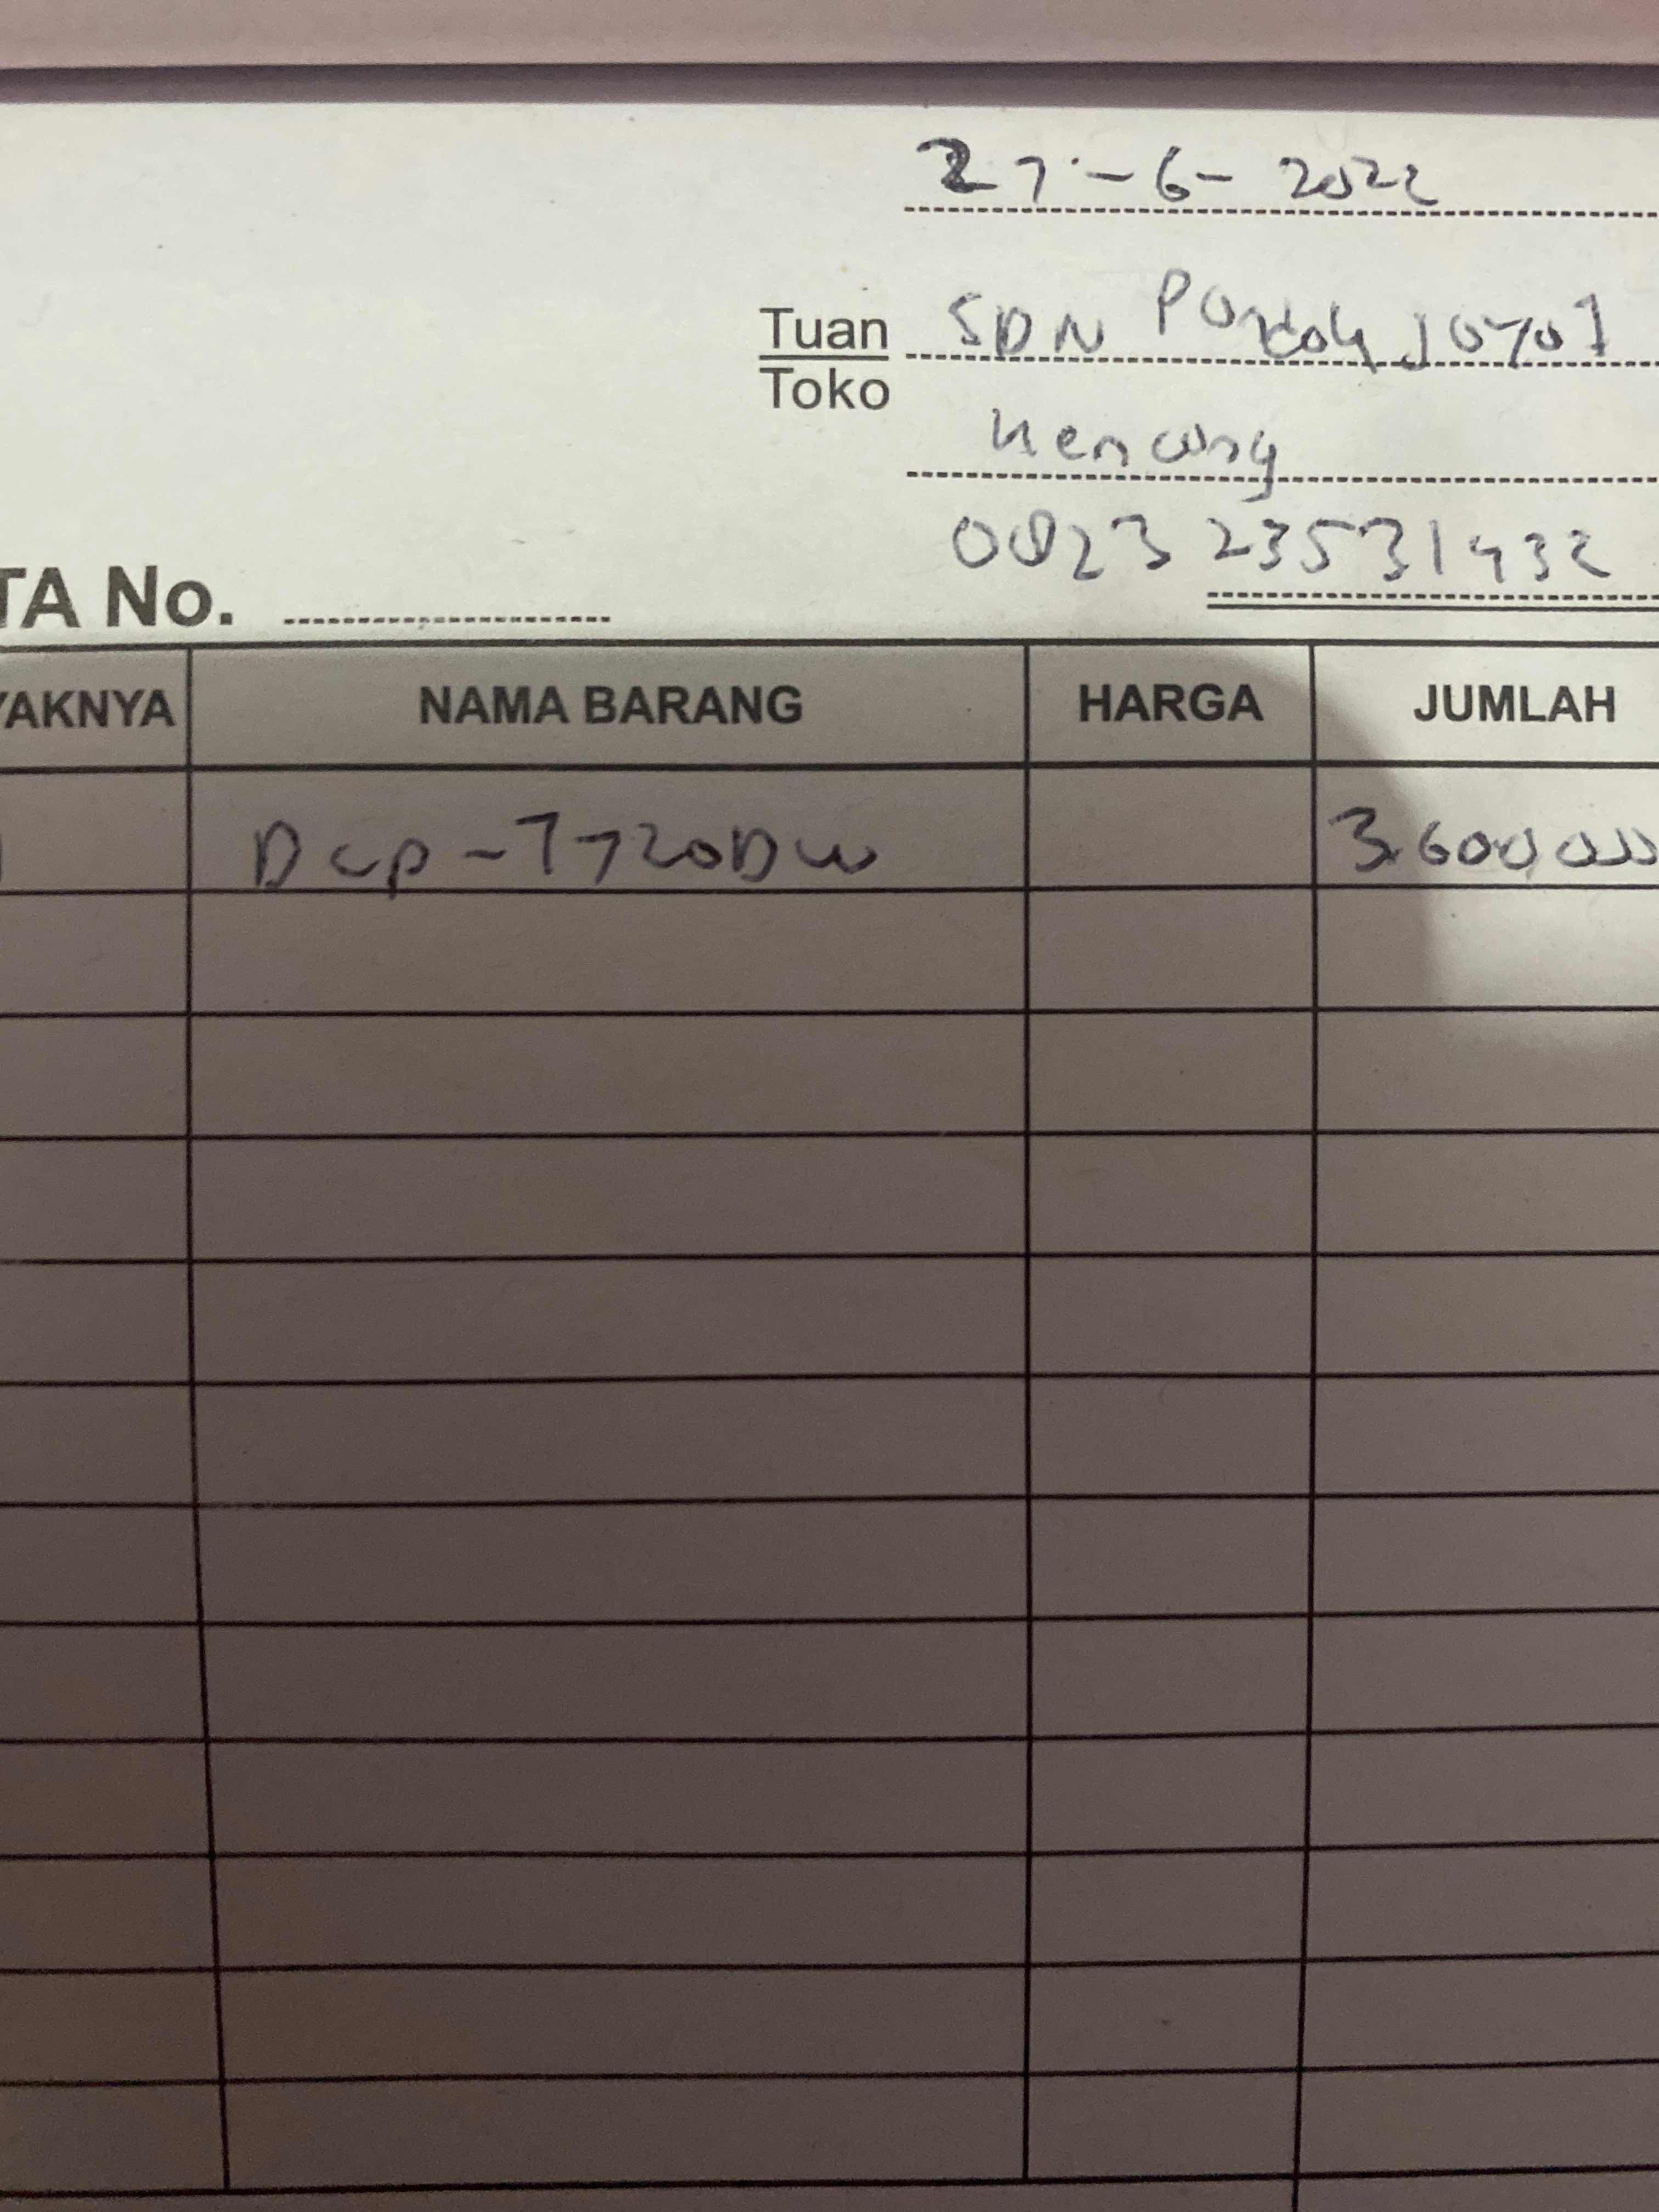 27-6-2022
Tuan SDN Pondok Joyo 1
Toko
Kencong
0823 23531432
TA No.
YAKNYA NAMA BARANG HARGA JUMLAH
1 Dcp-T720DW 3.600000